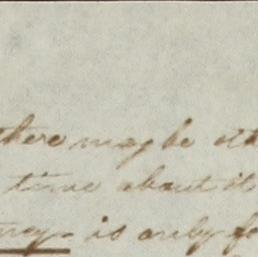 there may be
time about it
is only